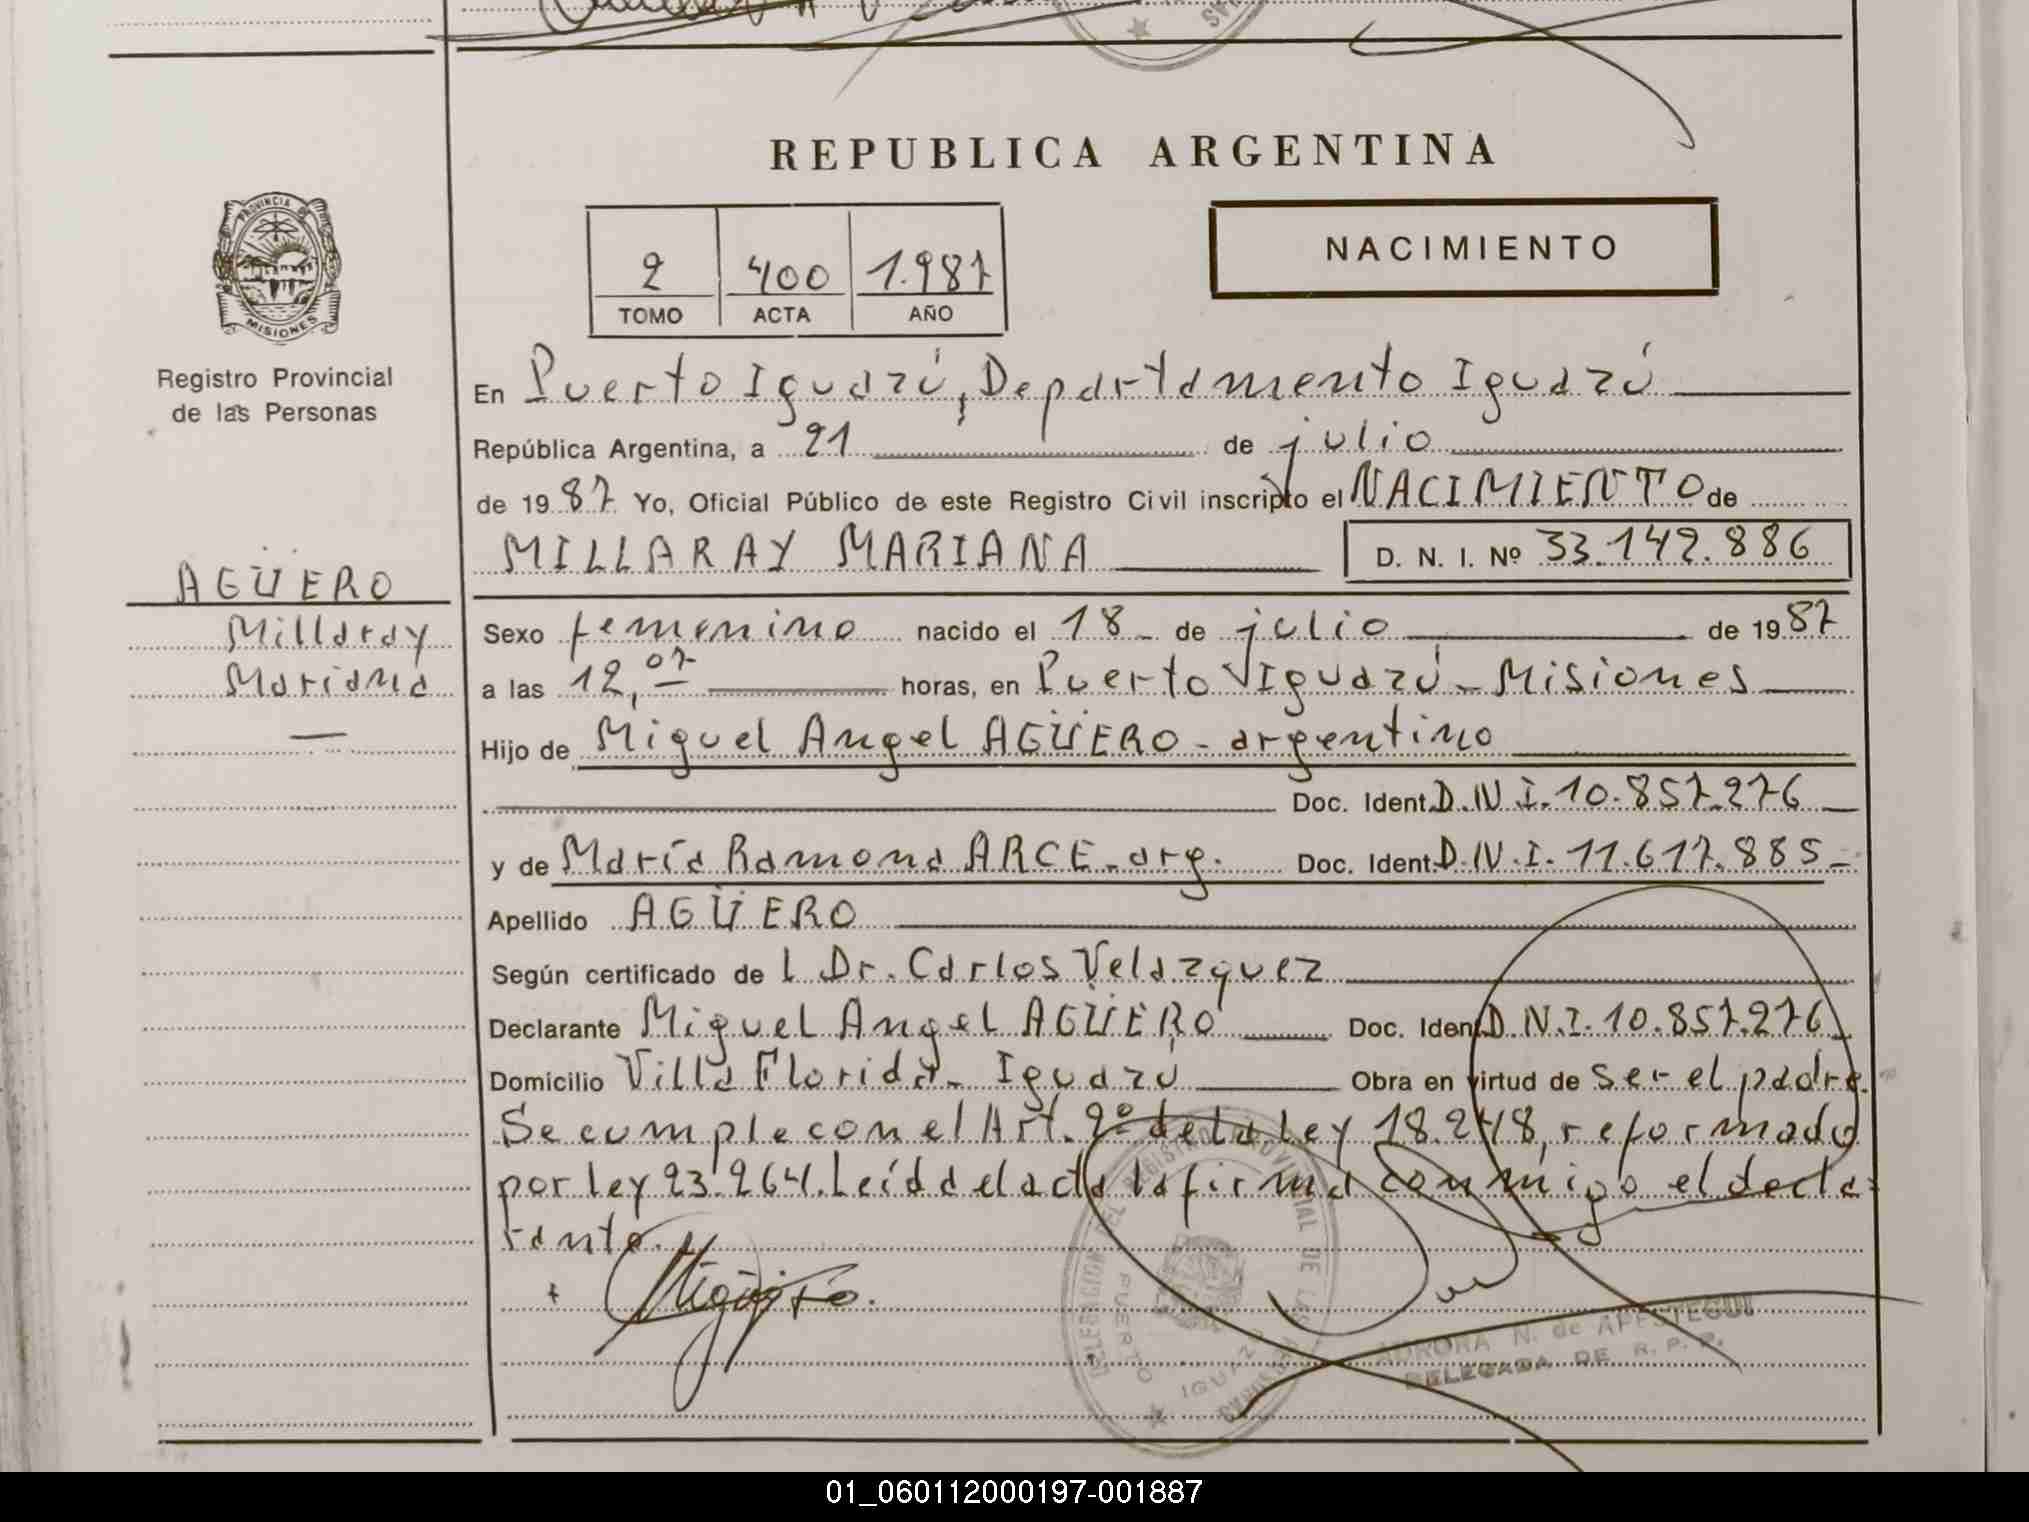 REPUBLICA ARGENTINA
PROVINCIA DE
MISIONES
Registro Provincial
de las Personas
2 400 1.987
TOMO ACTA AÑO
NACIMIENTO
En Puerto Iguazú, Departamento Iguazú
República Argentina, a 21 de julio
de 1987 Yo, Oficial Público de este Registro Civil inscripto el NACIMIENTO de
MILLARAY MARIANA D. N. I. Nº 33.142.886
AGÜERO
Millaray
Mariana
Sexo femenino nacido el 18 de julio de 1987
a las 12,07 horas, en Puerto Iguazú - Misiones
Hijo de Miguel Angel AGÜERO - argentino
Doc. Ident. D.N.I. 10.857.276
y de María Ramona ARCE - arg. Doc. Ident. D.N.I. 11.617.885 -
Apellido AGÜERO
Según certificado de l Dr. Carlos Velazquez
Declarante Miguel Angel AGÜERO Doc. Iden D.N.I. 10.857.276
Domicilio Villa Florida - Iguazú Obra en virtud de ser el padre.
Se cumple con el Art. 2º de la Ley 18.248, reformado
por Ley 23.264. Leída el acta la firma conmigo el decla-
rante.
DELEGACION DEL REGISTRO PROVINCIAL DE LAS PERSONAS
PUERTO IGUAZU
AURORA N. de APESTEGUI
DELEGADA DE R. P. P.
01_060112000197-001887